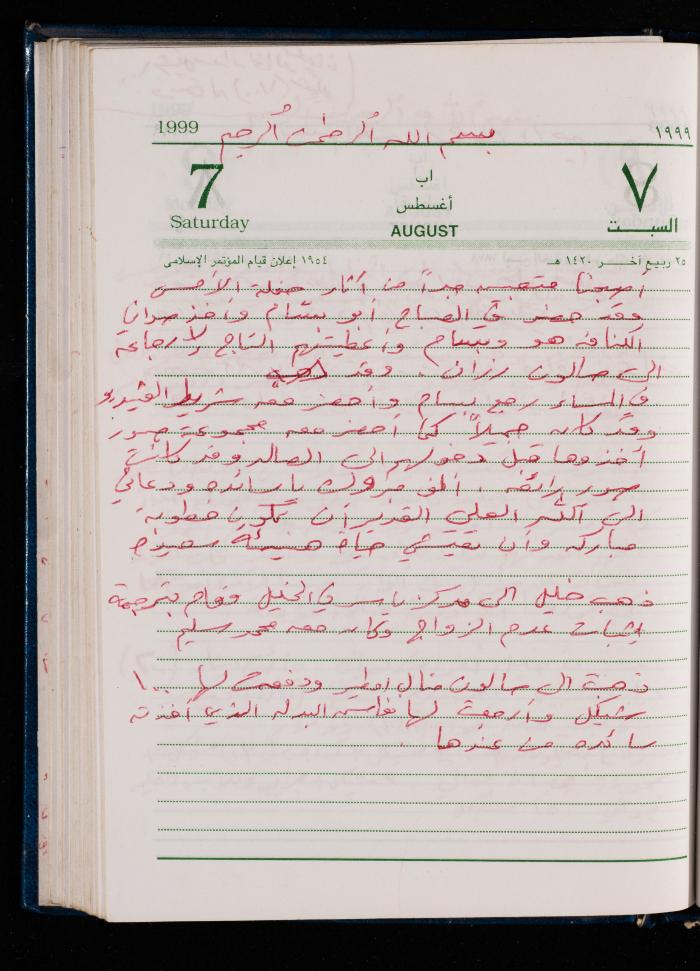 1999 بسم الله الرحمن الرحيم ١٩٩٩
7 اب ٧
أغسطس
Saturday AUGUST السبت
٢٥ ربيع آخر ١٤٢٠ هـ ١٩٥٤ إعلان قيام المؤتمر الإسلامي
أصبحنا متعبين جداً من آثار حفلة الأمس
وقد حضر في الصباح أبو بسام وأخذ صواني
الكنافه هو وبسام وأعطيتهم التاج لإرجاعه
الى صالون رزان . وقد
في المساء رجع بسام وأحضر معه شريط الفيديو
وقد كان جميلاً كما أحضر معه مجموعة صور
أخذوها قبل دخولهم الى الصاله وقد كانت
صور رائعه . الف مبروك يا رائده ودعائي
الى الله العلي القدير أن تكون خطوبة
مباركه وأن تعيشي حياة هنيئة سعيده
ذهب خليل الى مركز ياسر في الخليل وقام بترجمة
إثبات عدم الزواج وكان معه محمد سليم
ذهبت الى صالون منال ودفعت لها ١٠٠
شيكل وأرجعت لها البدله الذي أخذته
رائده من عندها .